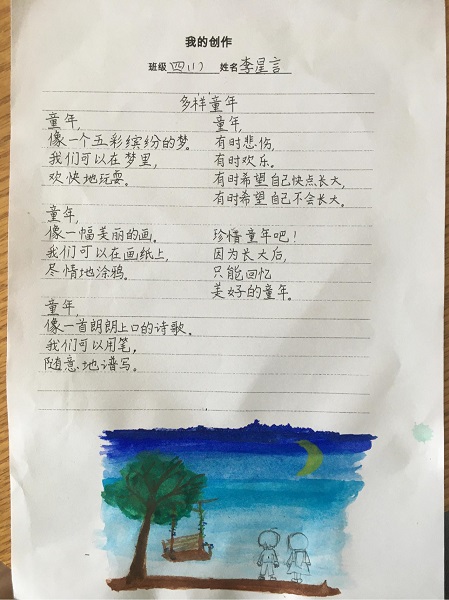 我的创作
班级 四(1) 姓名 李星言
多样童年
童年,
像一个五彩缤纷的梦。
我们可以在梦里,
欢快地玩耍。
童年,
像一幅美丽的画。
我们可以在画纸上,
尽情地涂鸦。
童年,
像一首朗朗上口的诗歌。
我们可以用笔,
随意地谱写。
童年,
有时悲伤,
有时欢乐。
有时希望自己快点长大,
有时希望自己不会长大。
珍惜童年吧!
因为长大后,
只能回忆
美好的童年。